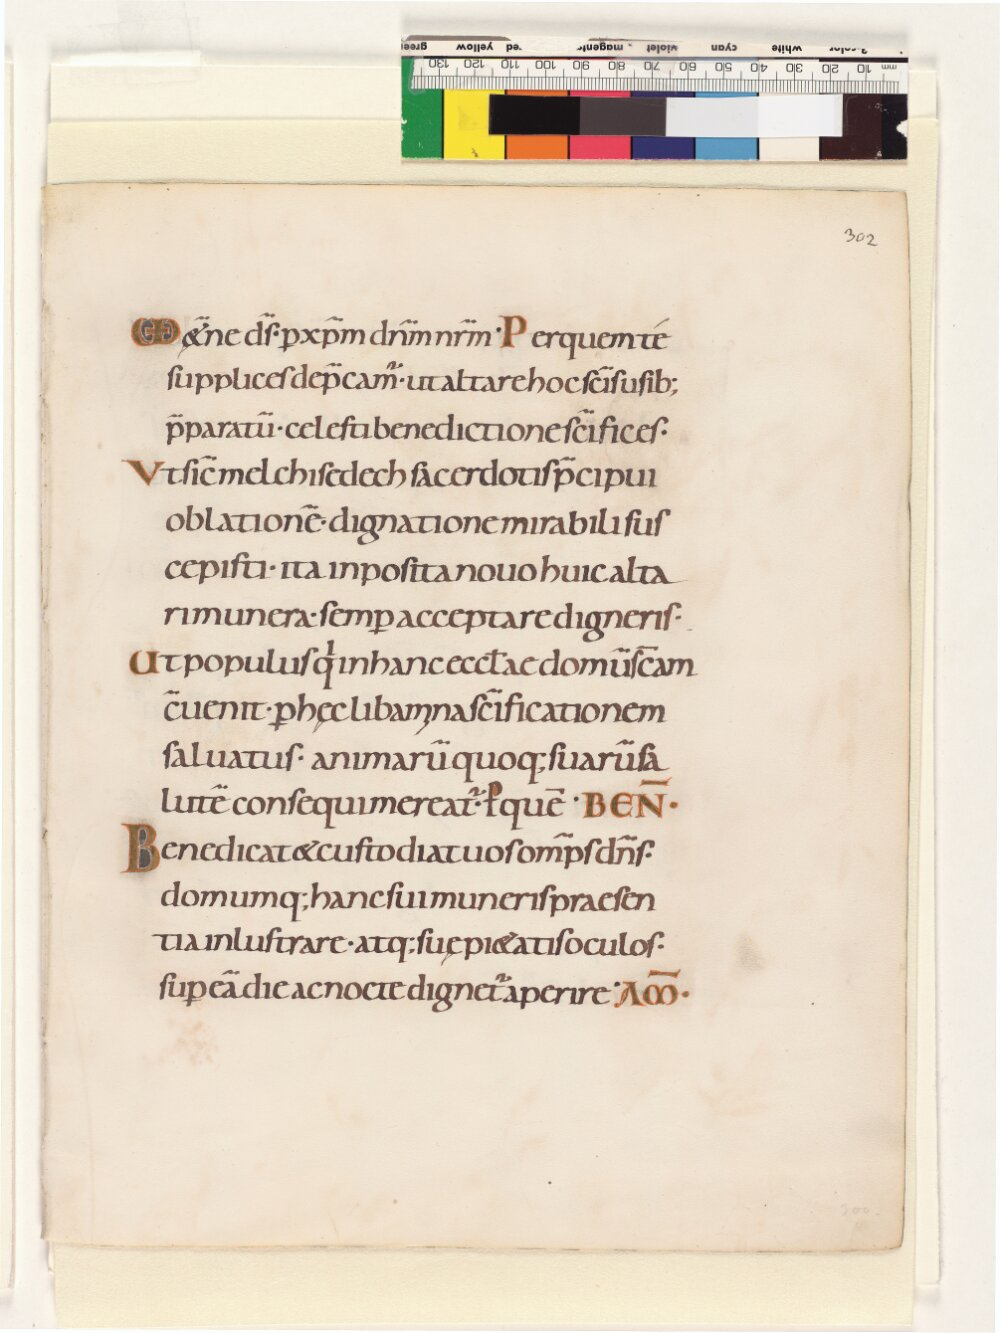 green yellow red magenta violet cyan white 3-color
130 120 110 100 90 80 70 60 50 40 30 20 10 mm
302
Æ&̃ne dſ̃· pxp̃m dñm nr̃m· Per quem té
ſupplices dep̃camᷣ· ut altare hoc ſc̃iſ uſib;
p̃paratũ· celeſti benedictione ſc̃ifices·
Vt ſic̃ melchiſedech ſacerdotiſ p̃cipui
oblationẽ· dignatione mirabili ſuſ
cepiſti· ita inpoſita nouo huic alta
ri munera· ſemꝑ acceptare digneris·
Ut populuſ q̍ in hanc eccƚae domũ ſc̃am
c̃uenit· ꝑ hęc libamina ſc̃ificationem
ſaluatuſ· animarũ quoq; ſuarũ ſa
lutẽ conſequi mereatᷣ· P̱ quẽ· BEÑ·
Benedicat & cuſtodiat uoſ om̃pſ dñſ·
domumq; hanc ſui muneriſ praeſen
tia inluſtrare· atq; ſuę pi&atiſ oculoſ·
ſuꝑ eã die ac nocte dignetᷣ aperire· AM̃·
300